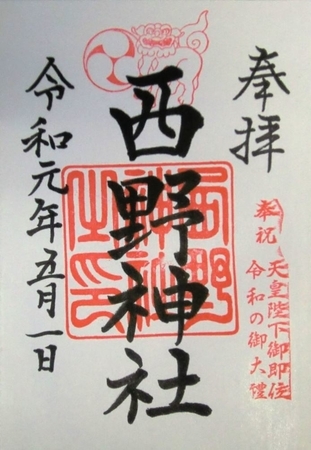 奉拝
奉祝
天皇陛下御即位
令和の御大禮
西野神社
西野神社之印
令和元年五月一日